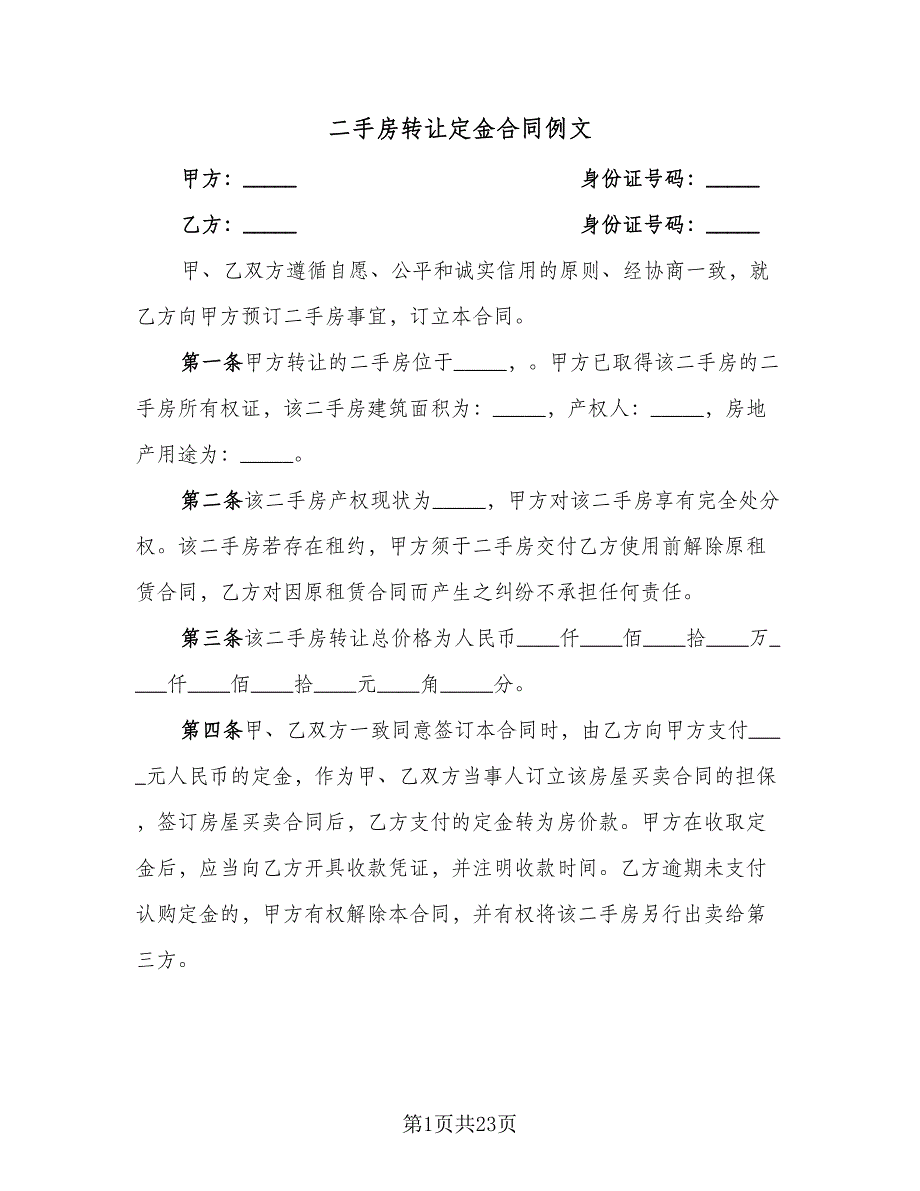 二手房转让定金合同例文
甲方：_____ 身份证号码：_____
乙方：_____ 身份证号码：_____
甲、乙双方遵循自愿、公平和诚实信用的原则、经协商一致，就
乙方向甲方预订二手房事宜，订立本合同。
第一条甲方转让的二手房位于_____，。甲方已取得该二手房的二
手房所有权证，该二手房建筑面积为：_____，产权人：_____，房地
产用途为：_____。
第二条该二手房产权现状为_____，甲方对该二手房享有完全处分
权。该二手房若存在租约，甲方须于二手房交付乙方使用前解除原租
赁合同，乙方对因原租赁合同而产生之纠纷不承担任何责任。
第三条该二手房转让总价格为人民币____仟____佰____拾____万_
___仟____佰____拾____元____角_____分。
第四条甲、乙双方一致同意签订本合同时，由乙方向甲方支付___
_元人民币的定金，作为甲、乙双方当事人订立该房屋买卖合同的担保
，签订房屋买卖合同后，乙方支付的定金转为房价款。甲方在收取定
金后，应当向乙方开具收款凭证，并注明收款时间。乙方逾期未支付
认购定金的，甲方有权解除本合同，并有权将该二手房另行出卖给第
三方。
第1页共23页